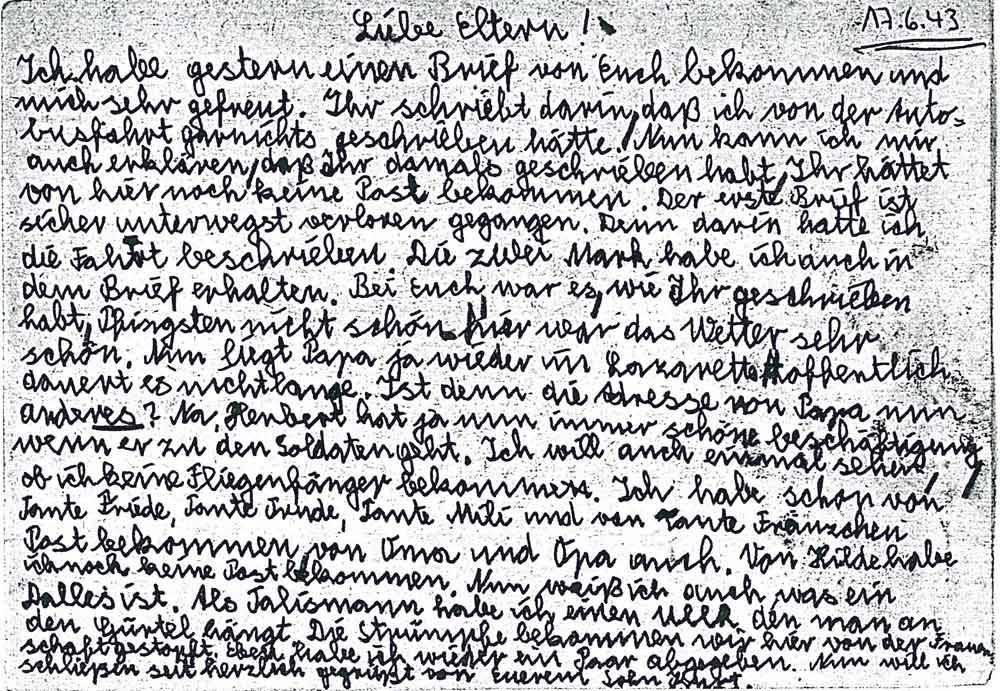 17.6.43
Liebe Eltern!
Ich habe gestern einen Brief von Euch bekommen und
mich sehr gefreut. Ihr schriebt darin, daß ich von der Auto-
busfahrt garnichts geschrieben hätte. Nun kann ich mir
auch erklären, daß Ihr damals geschrieben habt, Ihr hättet
von hier noch keine Post bekommen. Der erste Brief ist
sicher unterwegst verloren gegangen. Denn darin hatte ich
die Fahrt beschrieben. Die zwei Mark habe ich auch in
dem Brief erhalten. Bei Euch war es, wie Ihr geschrieben
habt, Pfingsten nicht schön. hier war das Wetter sehr
schön. Nun liegt Papa ja wieder im Lazarett. Hoffentlich
dauert es nicht lange. Ist denn die Adresse von Papa nun
anderes? Na, Herbert hat ja nun immer schöne beschäftigung,
wenn er zu den Soldaten geht. Ich will auch einmal sehen
ob ich keine Fliegenfänger bekommen. Ich habe schon von
Tante Friede, Tante Trude, Tante Mili und von Tante Fränzchen
Post bekommen, von Oma und Opa auch. Von Hilde habe
ich noch keine Post bekommen. Nun weiß ich auch was ein
Dalles ist. Als Talismann habe ich einen den man an
den Gürtel hängt. Die Strümpfe bekommen wir hier von der Frauen
schaft gestopft. Eben habe ich wieder ein Paar abgegeben. Nun will ich
schließen seit herzlich gegrüßt von Euerem Sohn